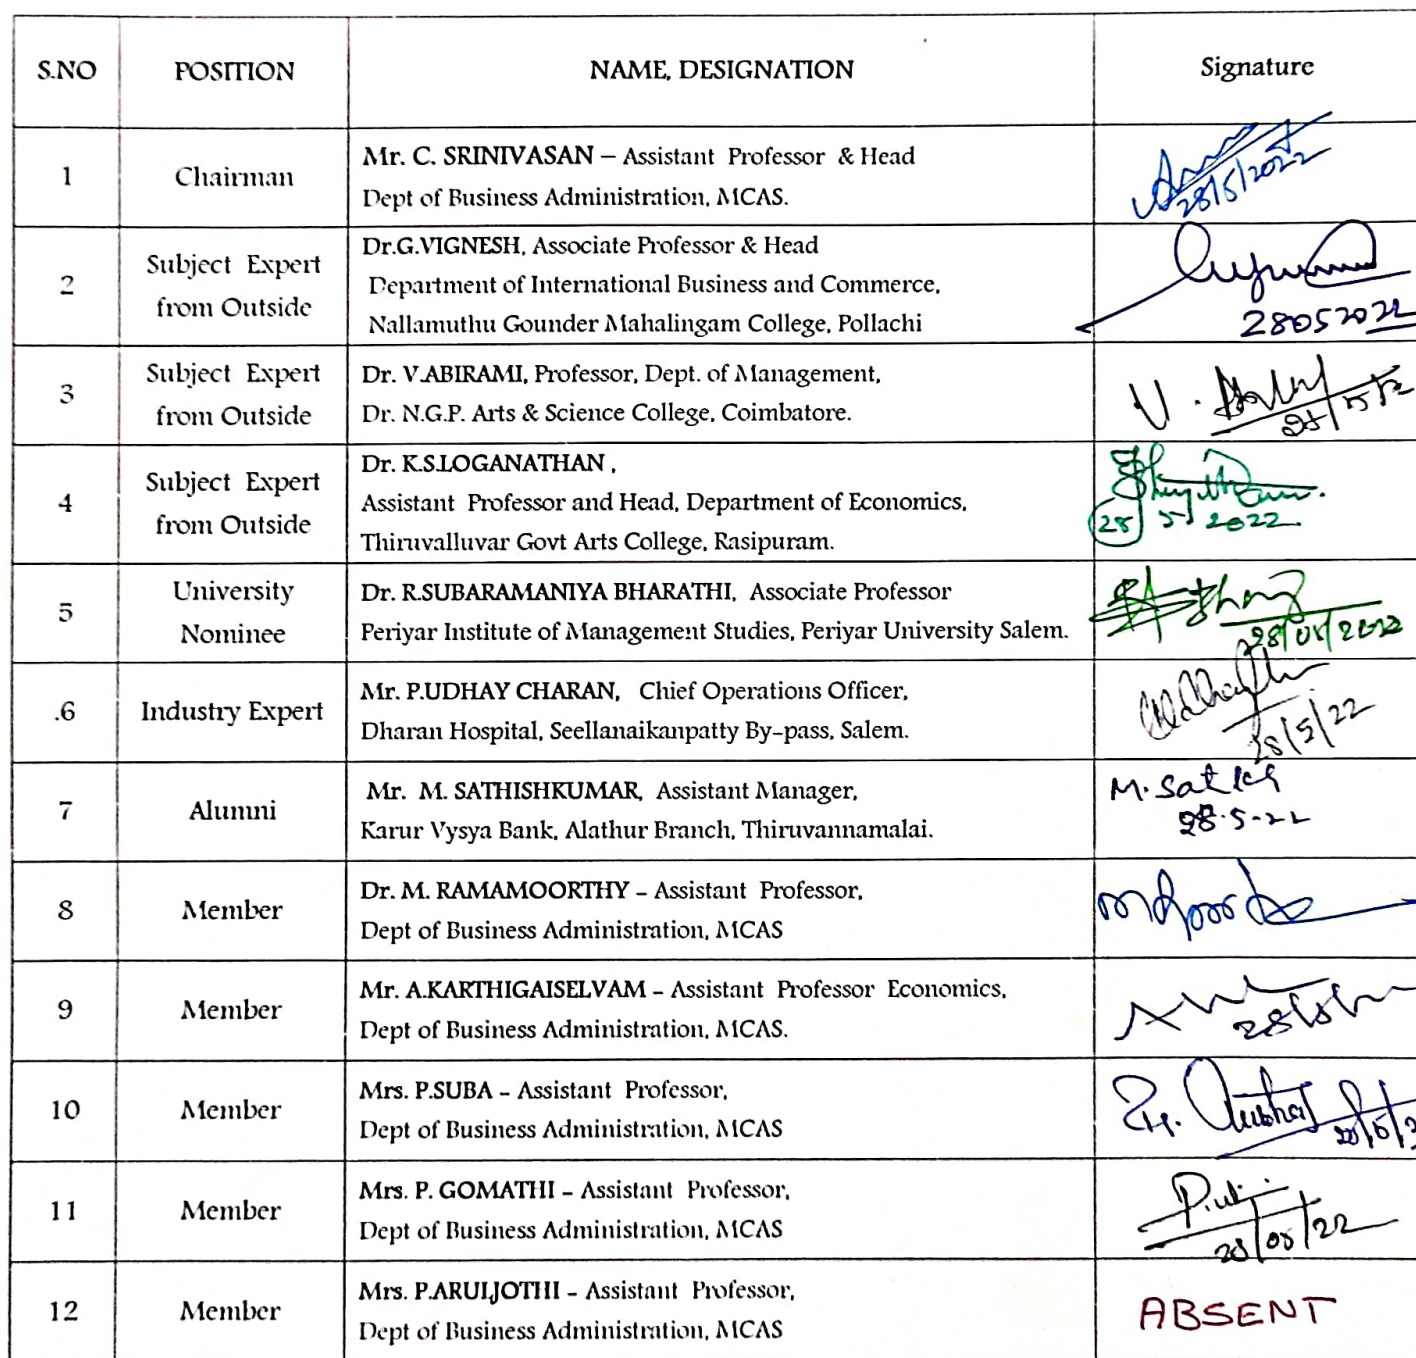 S.NO POSITION NAME, DESIGNATION Signature
1 Chairman Mr. C. SRINIVASAN – Assistant Professor & Head
Dept of Business Administration, MCAS.
28/5/2022
2 Subject Expert from Outside Dr.G.VIGNESH, Associate Professor & Head
Department of International Business and Commerce,
Nallamuthu Gounder Mahalingam College, Pollachi
28052022
3 Subject Expert from Outside Dr. V.ABIRAMI, Professor, Dept. of Management,
Dr. N.G.P. Arts & Science College, Coimbatore.
4 Subject Expert from Outside Dr. K.S.LOGANATHAN ,
Assistant Professor and Head, Department of Economics,
Thiruvalluvar Govt Arts College, Rasipuram.
28 5 2022
5 University Nominee Dr. R.SUBARAMANIYA BHARATHI, Associate Professor
Periyar Institute of Management Studies, Periyar University Salem.
28/05/2022
.6 Industry Expert Mr. P.UDHAY CHARAN, Chief Operations Officer,
Dharan Hospital, Seellanaikanpatty By-pass, Salem.
28/5/22
7 Alumni Mr. M. SATHISHKUMAR, Assistant Manager,
Karur Vysya Bank, Alathur Branch, Thiruvannamalai.
28-5-22
8 Member Dr. M. RAMAMOORTHY – Assistant Professor,
Dept of Business Administration, MCAS
9 Member Mr. A.KARTHIGAISELVAM – Assistant Professor Economics,
Dept of Business Administration, MCAS.
10 Member Mrs. P.SUBA – Assistant Professor,
Dept of Business Administration, MCAS
11 Member Mrs. P. GOMATHI – Assistant Professor,
Dept of Business Administration, MCAS
28/05/22
12 Member Mrs. P.ARULJOTHI – Assistant Professor,
Dept of Business Administration, MCAS
ABSENT